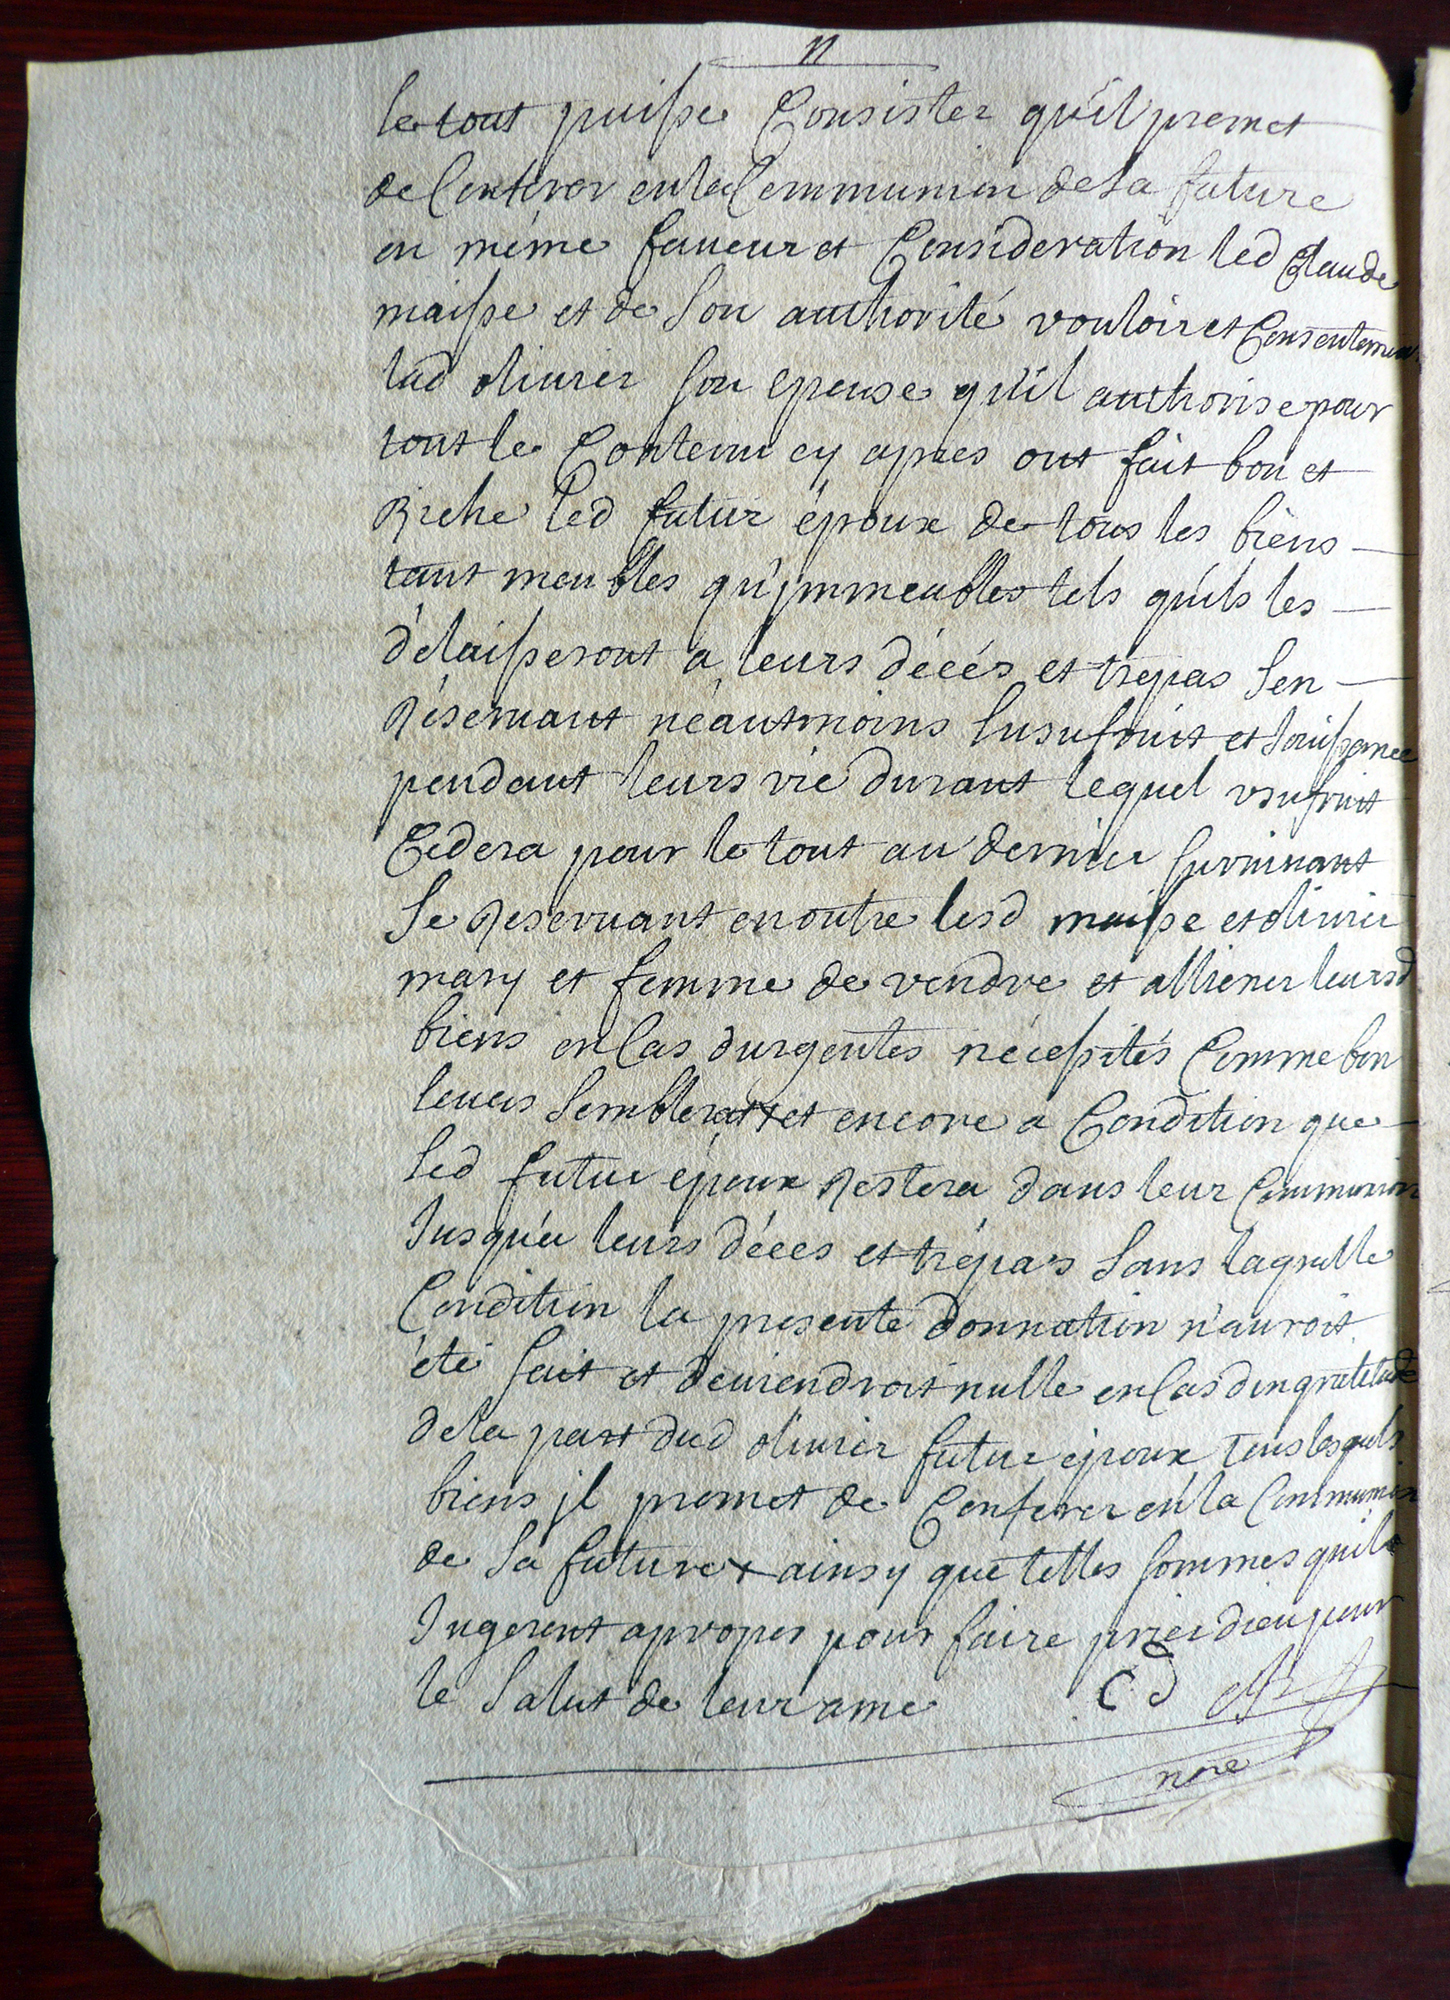 n
le tout puisse Consister qu'il promet
de Conferer en la Communion de sa future
en même faueur et Consideration led Claude
maisse et de son authorité vouloir et Consentement
lad oliuier son epouse qu'il authorise pour
tout le Contenu cy apres ont fait bon et
Riche led futur époux de tous les biens
tant meubles qu'jmmeubles tels qu'ils les
délaisseront a leurs décés et trepas sen
Réseruant néautmoins lusufruit et Jouissance
pendant leurs vie durant lequel vsufruit
Cedera pour le tout au dernier suruiuant
se Reseruant en outre lesd maisse et oliuier
mary et femme de vendre et alliener leursd
biens en Cas durgentes nécessités Comme bon
leurs semblera et encore a Condition que
led futur époux Restera dans leur Communion
Jusqu'a leurs décés et trépas sans laquelle
Condition la presente donnation n'auroit
été fait et deuiendroit nulle en Cas dingratitude
de la part dud oliuier futur époux tous lesquels
biens jl promet de Conferer en la Communion
de sa future + ainsy que telles sommes quils
Jugeront apropos pour faire prier dieu pour
le salut de leur ame
nre